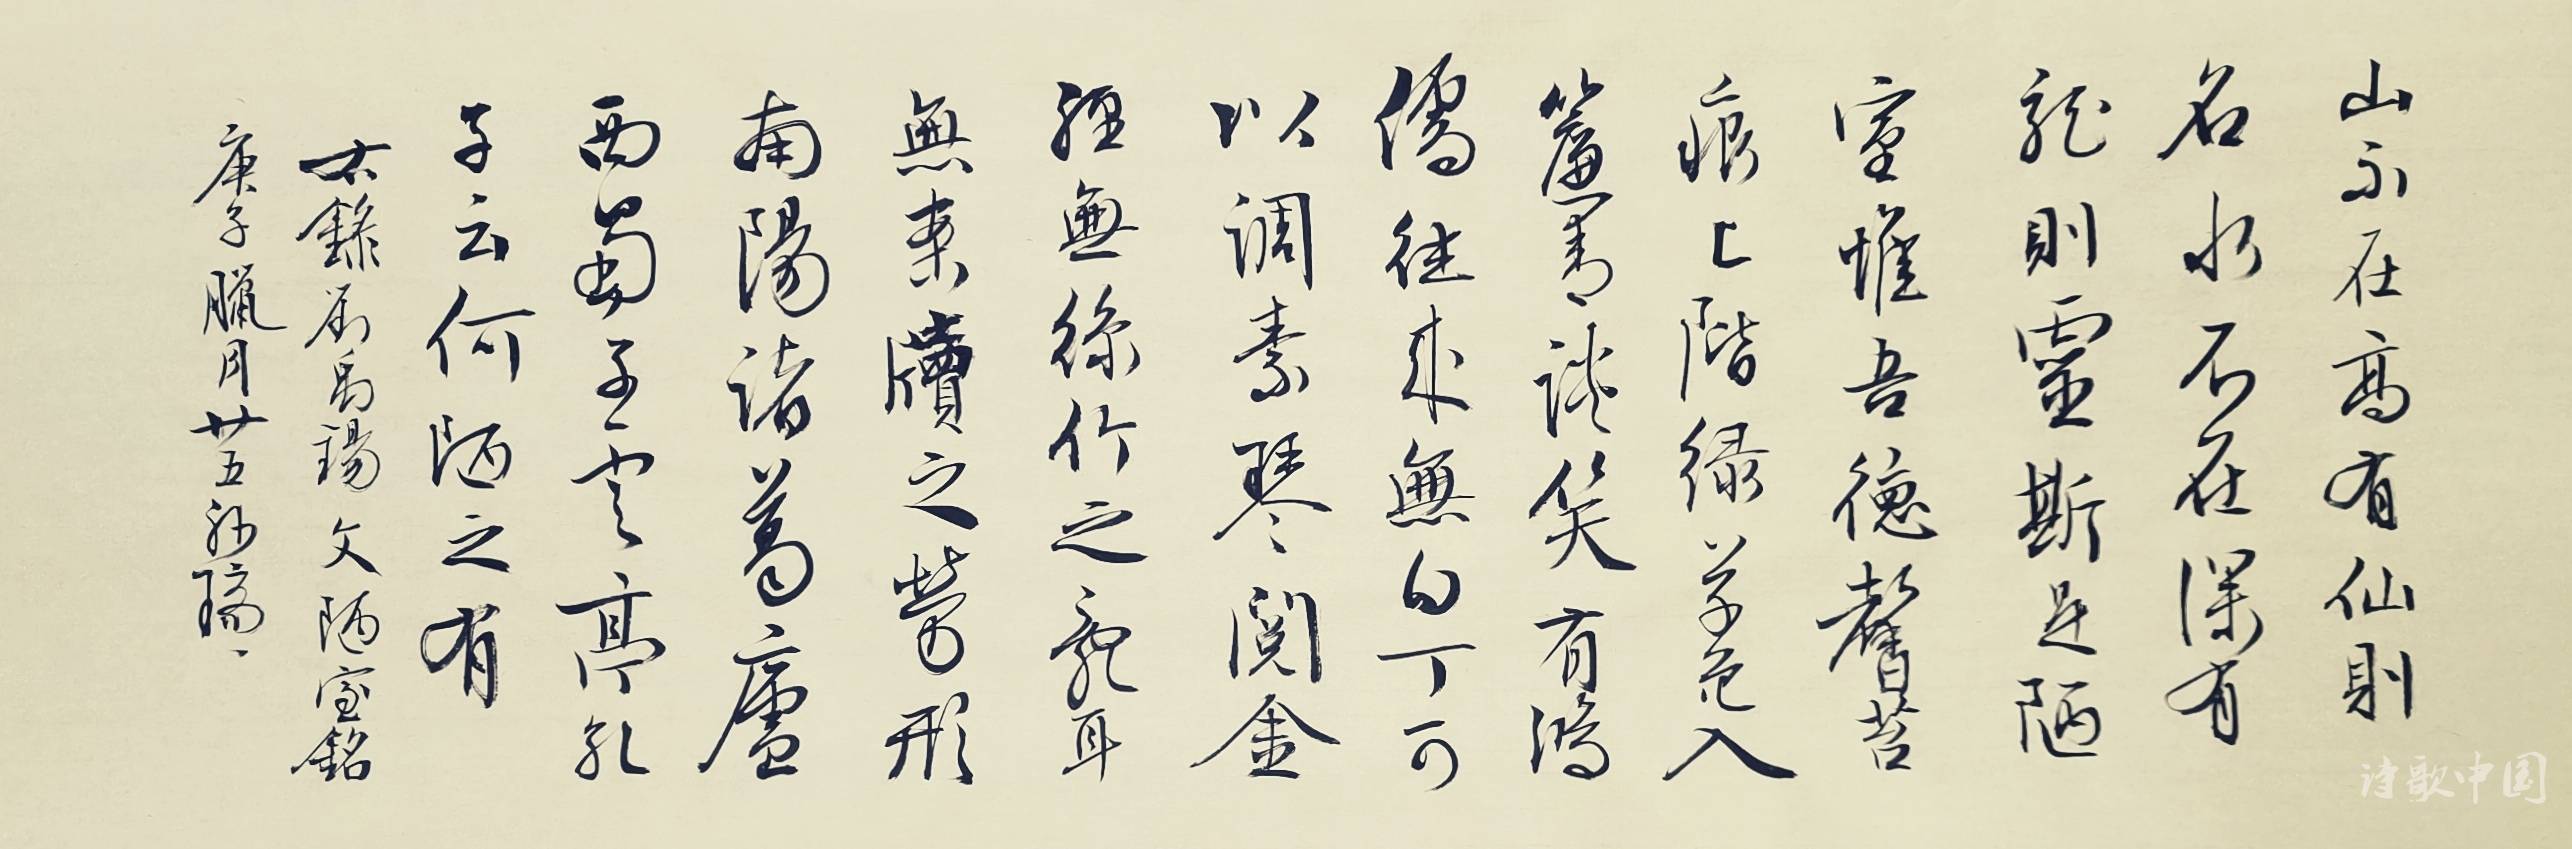 山不在高有仙則
名水不在深有
龍則靈斯是陋
室惟吾德馨苔
痕上階綠草色入
簾青談笑有鴻
儒往來無白丁可
以調素琴閱金
經無絲竹之亂耳
無案牘之勞形
南陽諸葛廬
西蜀子雲亭孔
子云何陋之有
右錄劉禹錫文陋室銘
庚子臘月廿五
诗歌中国